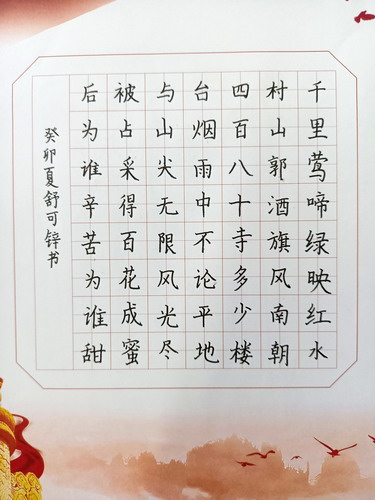 千里莺啼绿映红水
村山郭酒旗风南朝
四百八十寺多少楼
台烟雨中不论平地
与山尖无限风光尽
被占采得百花成蜜
后为谁辛苦为谁甜
癸卯夏舒可锌书